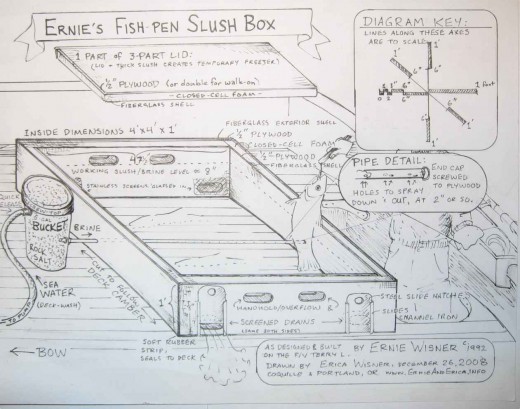 ERNIE'S FISH-PEN SLUSH BOX
1 PART OF 3-PART LID:
(LID + THICK SLUSH CREATES TEMPORARY FREEZER)
1/2" PLYWOOD (or double for walk-on)
CLOSED-CELL FOAM
FIBERGLASS SHELL
DIAGRAM KEY:
LINES ALONG THESE AXES
ARE TO SCALE:
1'
1'
6"
6"
6"
1 foot
6"
6"
1'
1'
INSIDE DIMENSIONS 4'x4'x1'
FIBERGLASS EXTERIOR SHELL
1/2" PLYWOOD
CLOSED-CELL FOAM
1/2" PLYWOOD
FIBERGLASS SHELL
WORKING SLUSH/BRINE LEVEL = 8"
STAINLESS SCREENS
PIPE DETAIL:
END CAP
SCREWED
TO PLYWOOD
HOLES TO SPRAY
DOWN & OUT, AT 2" OR SO.
BUCKET
OF
ROCK
SALT
BRINE
SEA
WATER
(DECK-WASH)
CUT TO FIT
DECK CAMBER
1'
HANDHOLD/OVERFLOW
SCREENED DRAINS
(SAME BOTH SIDES)
STEEL SLIDE HATCHES
SLIDES
CHANNEL IRON
SOFT RUBBER
STRIP,
SEALS TO DECK
BOW
AS DESIGNED & BUILT BY ERNIE WISNER 1992
ON THE F/V TERRY L.
DRAWN BY ERICA WISNER, DECEMBER 26, 2008
COQUILLE & PORTLAND, OR www.ERNIEANDERICA.INFO